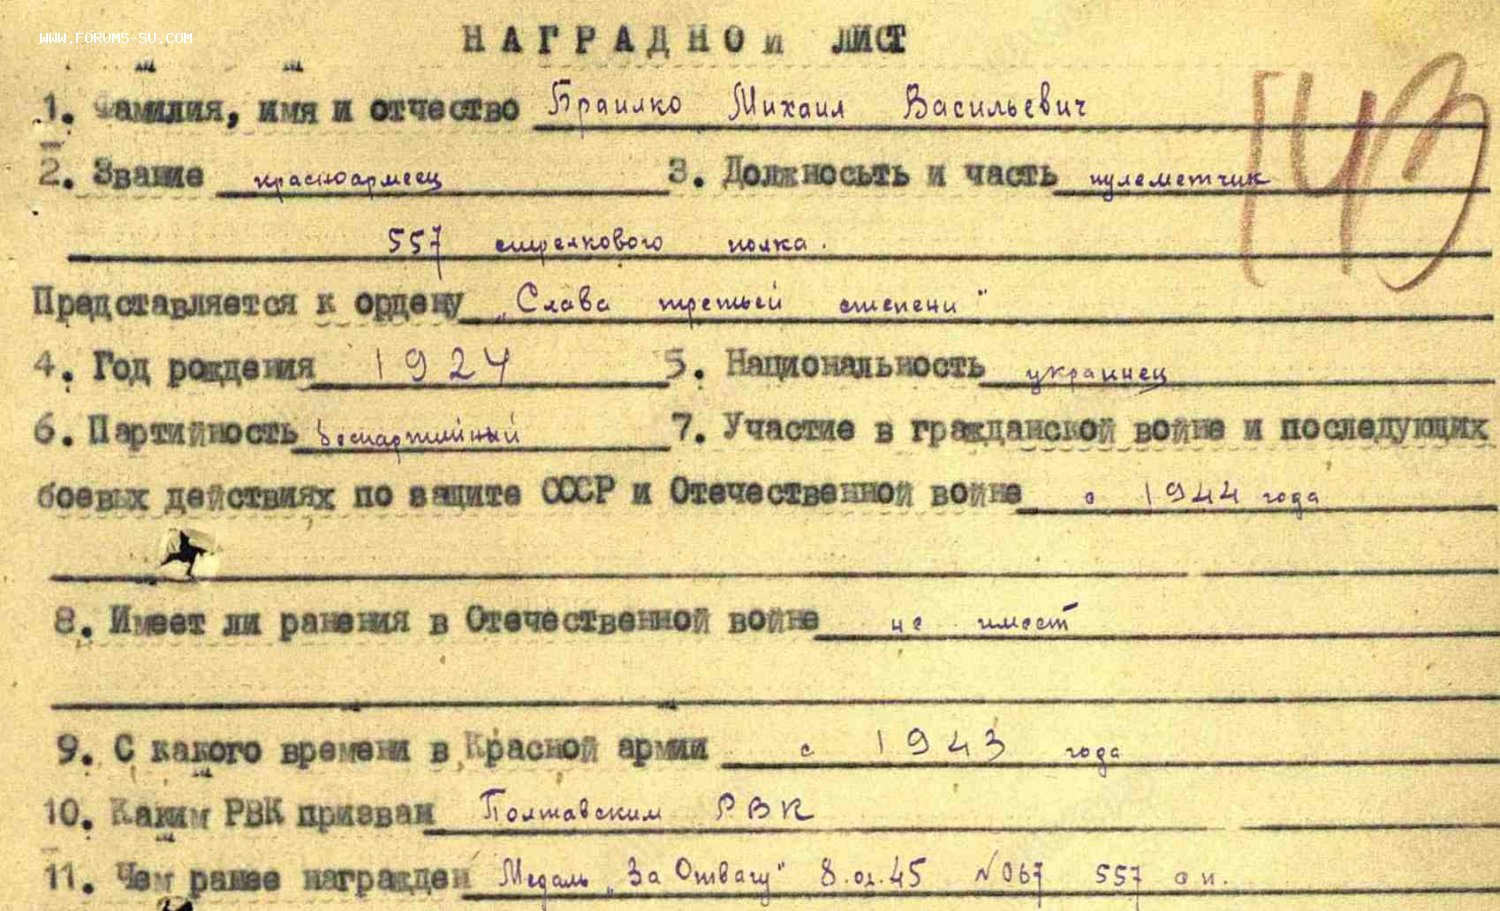 WWW.FORUMS-SU.COM
НАГРАДНОЙ ЛИСТ
1. Фамилия, имя и отчество Браилко Михаил Васильевич
2. Звание красноармеец 3. Должносьть и часть пулеметчик
557 стрелкового полка.
Представляется к ордену „Слава третьей степени"
4. Год рождения 1924 5. Национальность украинец
6. Партийность беспартийный 7. Участие в гражданской войне и последующих
боевых действиях по защите СССР и Отечественной войне с 1944 года
8. Имеет ли ранения в Отечественной войне не имеет
9. С какого времени в Красной армии с 1943 года
10. Каким РВК призван Полтавским РВК
11. Чем ранее награжден Медаль „За Отвагу" 8.01.45 №067 557 сп.